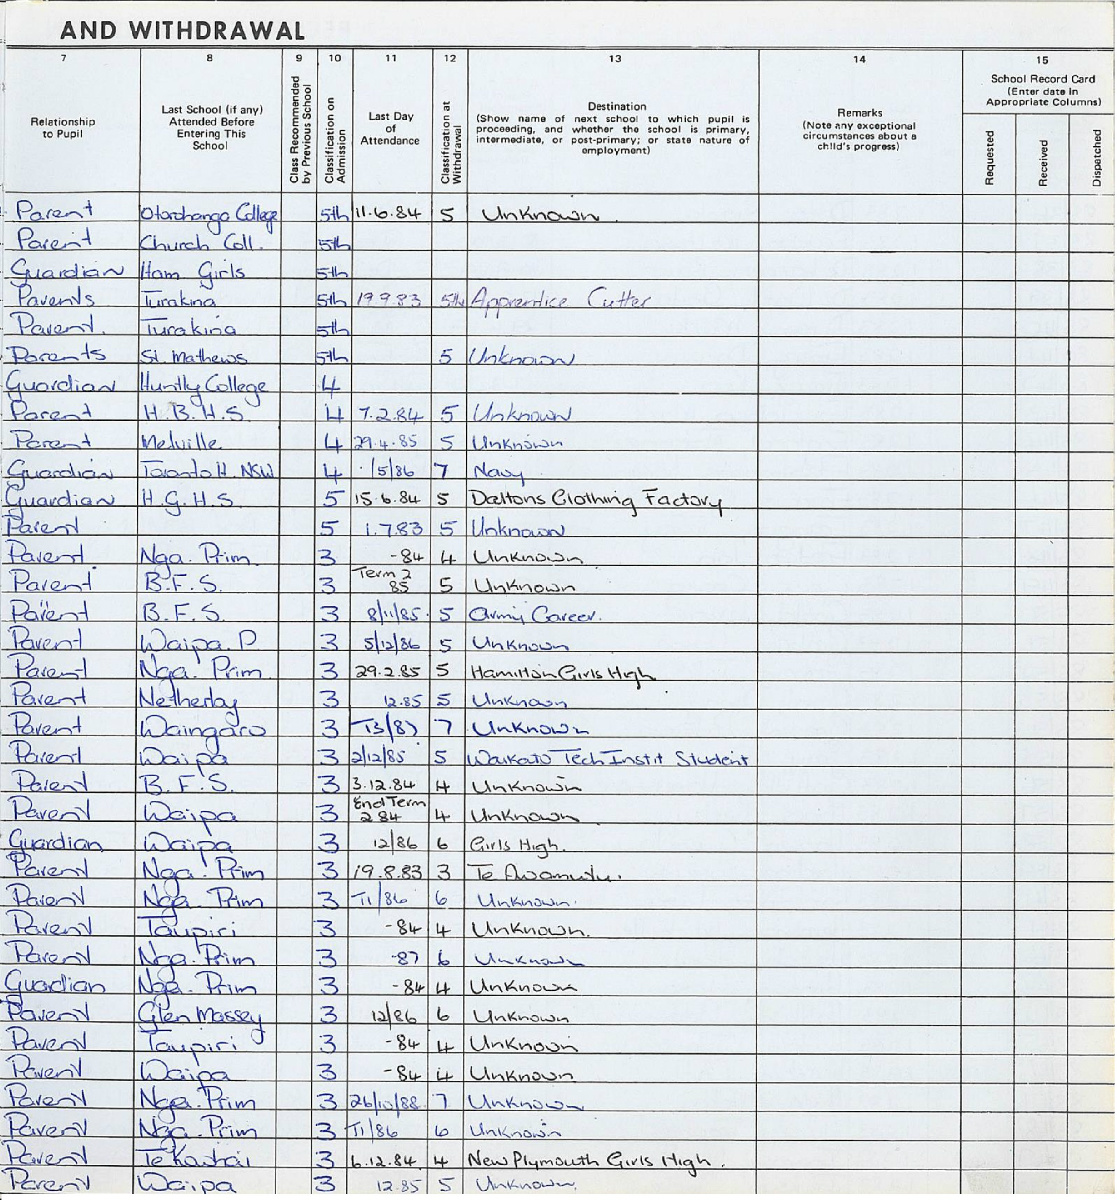 AND WITHDRAWAL
7 8 9 10 11 12 13 14 15
Relationship to Pupil
Last School (if any) Attended Before Entering This School
Class Recommended by Previous School
Classification on Admission
Last Day of Attendance
Classification at Withdrawal
Destination
(Show name of next school to which pupil is proceeding, and whether the school is primary, intermediate, or post-primary; or state nature of employment)
Remarks
(Note any exceptional circumstances about a child's progress)
School Record Card
(Enter date in Appropriate Columns)
Requested
Received
Dispatched
Parent Otorohanga College 5th 11.6.84 5 Unknown
Parent Church Coll. 5th
Guardian Ham Girls 5th
Parents Turakina 5th 19.9.83 5th Apprentice Cutter
Parent. Turakina 5th
Parents St. Mathews 5th 5 Unknown
Guardian Huntly College 4
Parent H.B.H.S. 4 7.2.84 5 Unknown
Parent Melville 4 29.4.85 5 Unknown
Guardian H. NSW 4 /5/86 7 Navy
Guardian H.G.H.S. 5 15.6.84 5 Daltons Clothing Factory
Parent 5 1.7.83 5 Unknown
Parent Nga. Prim. 3 -84 4 Unknown
Parent B.F.S. 3 Term 2 85 5 Unknown
Parent B.F.S. 3 8/11/85 5 Army Career.
Parent Waipa. P 3 5/12/86 5 Unknown
Parent Nga. Prim. 3 29.2.85 5 Hamilton Girls High
Parent Netherby 3 12.85 5 Unknown
Parent Waingaro 3 T3/87 7 Unknown
Parent Waipa 3 2/12/85 5 Waikato Tech Instit Student
Parent B.F.S. 3 3.12.84 4 Unknown
Parent Waipa 3 End Term 2 84 4 Unknown
Guardian Waipa 3 12/86 6 Girls High.
Parent Nga. Prim 3 19.8.83 3 Te Awamutu.
Parent Nga. Prim 3 T1/86 6 Unknown.
Parent Taupiri 3 -84 4 Unknown.
Parent Nga. Prim 3 -87 6 Unknown
Guardian Nga. Prim 3 -84 4 Unknown
Parent Glen Massey 3 12/86 6 Unknown
Parent Taupiri 3 -84 4 Unknown
Parent Waipa 3 -84 4 Unknown
Parent Nga. Prim 3 26/10/88 7 Unknown
Parent Nga. Prim 3 T1/86 6 Unknown
Parent Te Kauhai 3 6.12.84 4 New Plymouth Girls High.
Parent Waipa 3 12.85 5 Unknown.